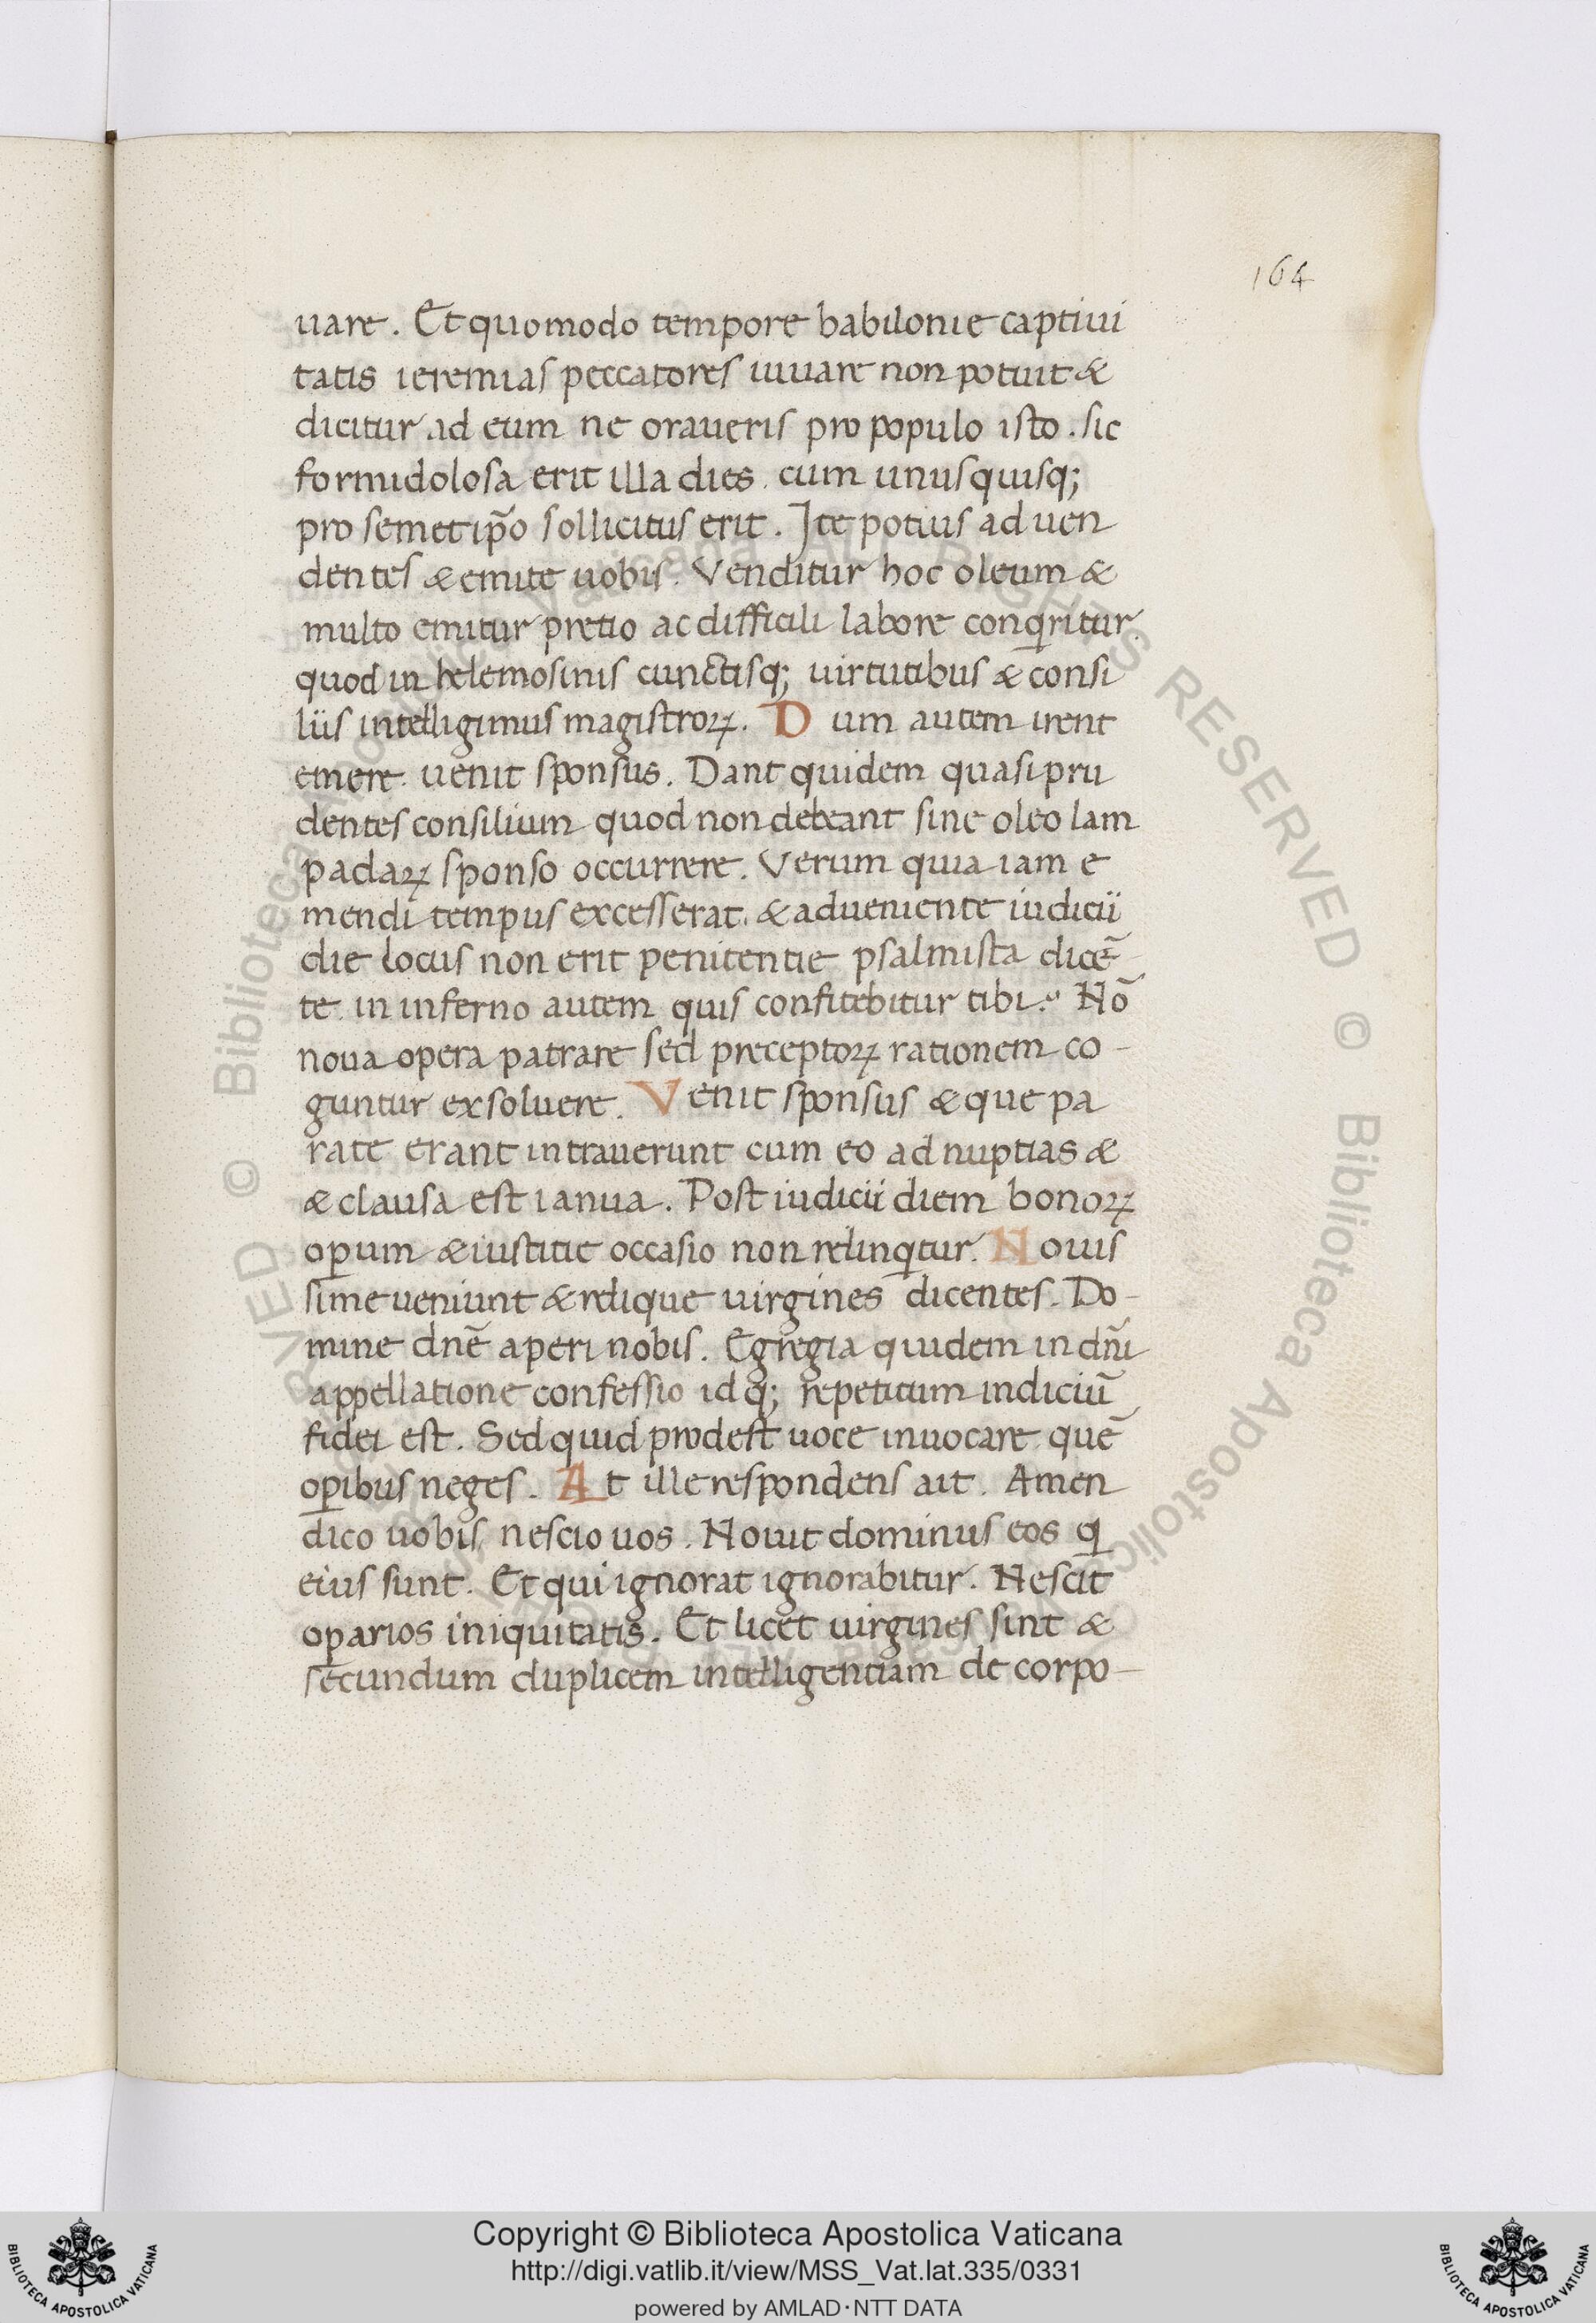 164
uare. Et quomodo tempore babilonie captiui
tatis ieremias peccatores iuuare non potuit &
dicitur ad eum ne oraueris pro populo isto. sic
formidolosa erit illa dies. cum unusquisq;
pro semetip̃o sollicitus erit. Ite potius ad uen
dentes & emite uobis. Venditur hoc oleum &
multo emitur pretio ac difficili labore conq̲ritur.
quod in helemosinis cunctisq; uirtutibus & consi
liis intelligimus magistroꝝ. Dum autem irent
emere. uenit sponsus. Dant quidem quasi pru
dentes consilium quod non debeant sine oleo lam
padaꝝ sponso occurrere. Verum quia iam e
mendi tempus excesserat. & adueniente iudicii
die locus non erit penitentie psalmista dicẽ-
te. in inferno autem quis confitebitur tibi? Nõ
noua opera patrare sed preceptoꝝ rationem co-
guntur exsoluere. Venit sponsus & que pa
rate erant intrauerunt cum eo ad nuptias &
& clausa est ianua. Post iudicii diem bonoꝝ
oꝑum & iustitie occasio non relinq̲tur. Nouis
sime ueniunt & relique uirgines dicentes. Do-
mine dnẽ aperi nobis. Egregia quidem in dñi
appellatione confessio idq; repetitum indiciũ
fidei est. Sed quid prodest uoce inuocare quẽ
oꝑibus neges. At ille respondens ait. Amen
dico uobis, nescio uos. Nouit dominus eos q̲
eius sunt. Et qui ignorat ignorabitur. Nescit
oꝑarios iniquitatis. Et licet uirgines sint &
secundum duplicem intelligentiam de corpo-
© Biblioteca Apostolica Vaticana ALL RIGHTS RESERVED
Copyright © Biblioteca Apostolica Vaticana
http://digi.vatlib.it/view/MSS_Vat.lat.335/0331
powered by AMLAD·NTT DATA
BIBLIOTECA APOSTOLICA VATICANA
BIBLIOTECA APOSTOLICA VATICANA